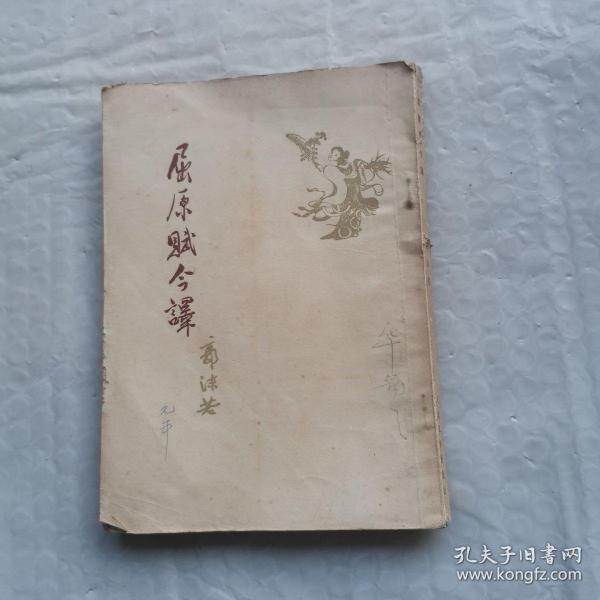 屈原賦今譯
郭沫若
元年
华
孔夫子旧書网
www.kongfz.com